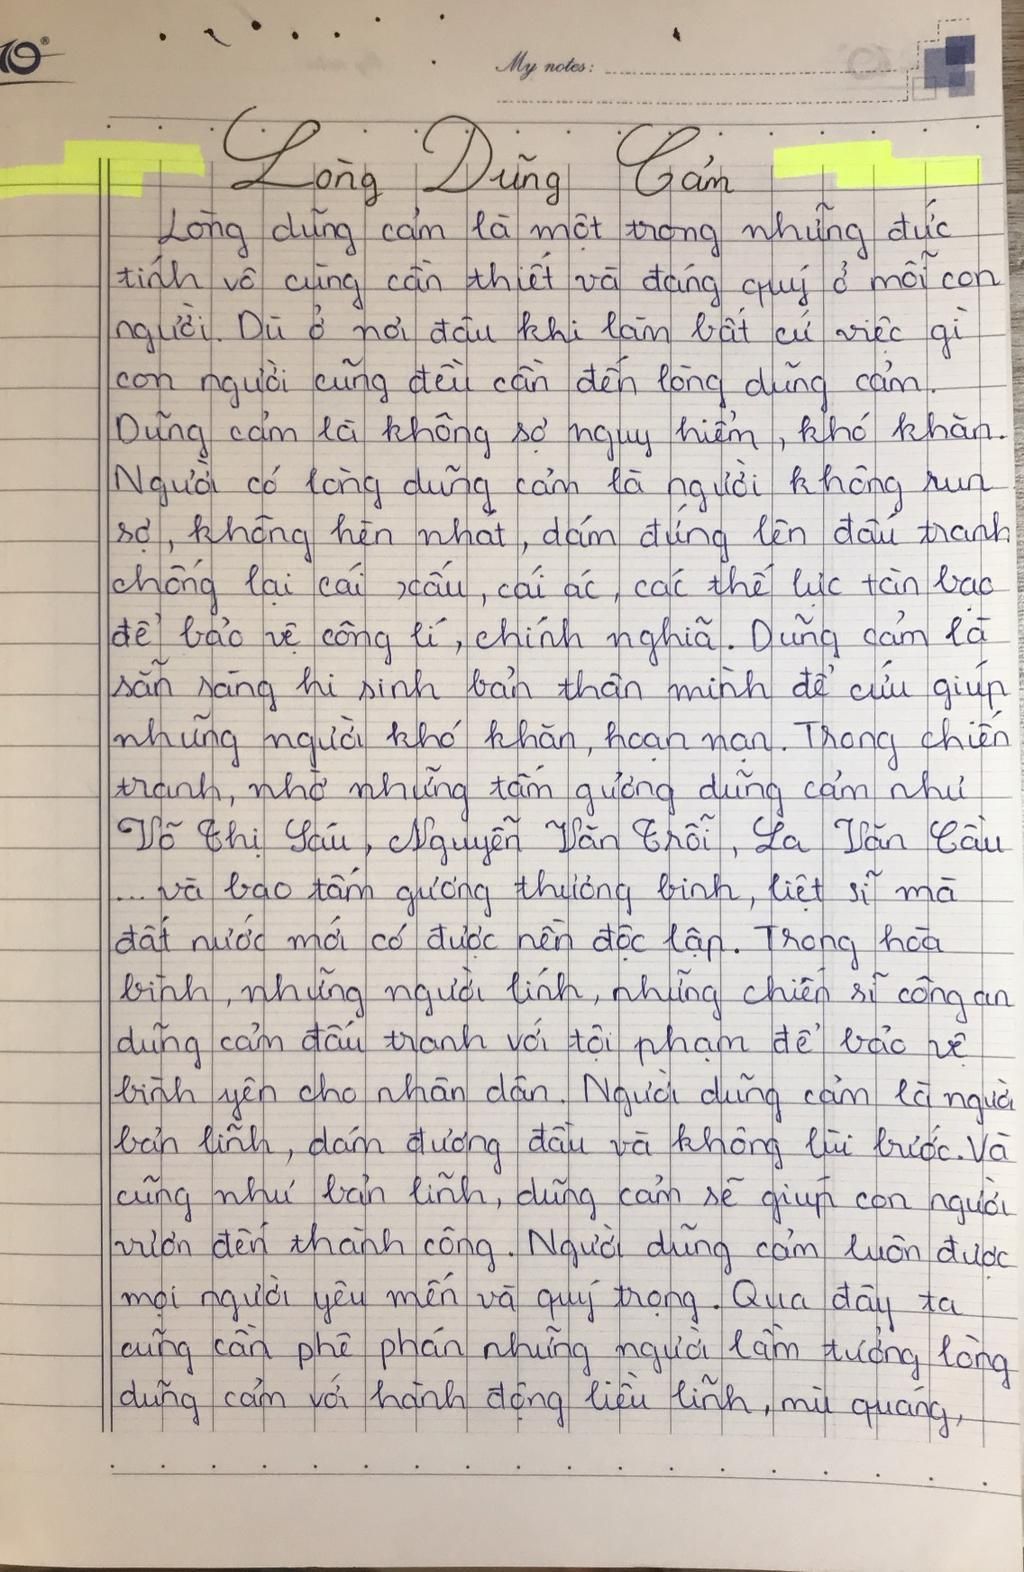 My notes:
Lòng Dũng Cảm
Lòng dũng cảm là một trong những đức
tính vô cùng cần thiết và đáng quý ở mỗi con
người. Dù ở nơi đâu khi làm bất cứ việc gì
con người cũng đều cần đến lòng dũng cảm.
Dũng cảm là không sợ nguy hiểm, khó khăn.
Người có lòng dũng cảm là người không run
sợ, không hèn nhát, dám đứng lên đấu tranh
chống lại cái xấu, cái ác, các thế lực tàn bạo
để bảo vệ công lí, chính nghĩa. Dũng cảm là
sẵn sàng hi sinh bản thân mình để cứu giúp
những người khó khăn, hoạn nạn. Trong chiến
tranh, nhờ những tấm gương dũng cảm như
Võ Thị Sáu, Nguyễn Văn Trỗi, La Văn Cầu
... và bao tấm gương thương binh, liệt sĩ mà
đất nước mới có được nền độc lập. Trong hòa
bình, những người lính, những chiến sĩ công an
dũng cảm đấu tranh với tội phạm để bảo vệ
bình yên cho nhân dân. Người dũng cảm là người
bản lĩnh, dám đương đầu và không lùi bước. Và
cũng như bản lĩnh, dũng cảm sẽ giúp con người
vươn đến thành công. Người dũng cảm luôn được
mọi người yêu mến và quý trọng. Qua đây ta
cũng cần phê phán những người lầm tưởng lòng
dũng cảm với hành động liều lĩnh, mù quáng,